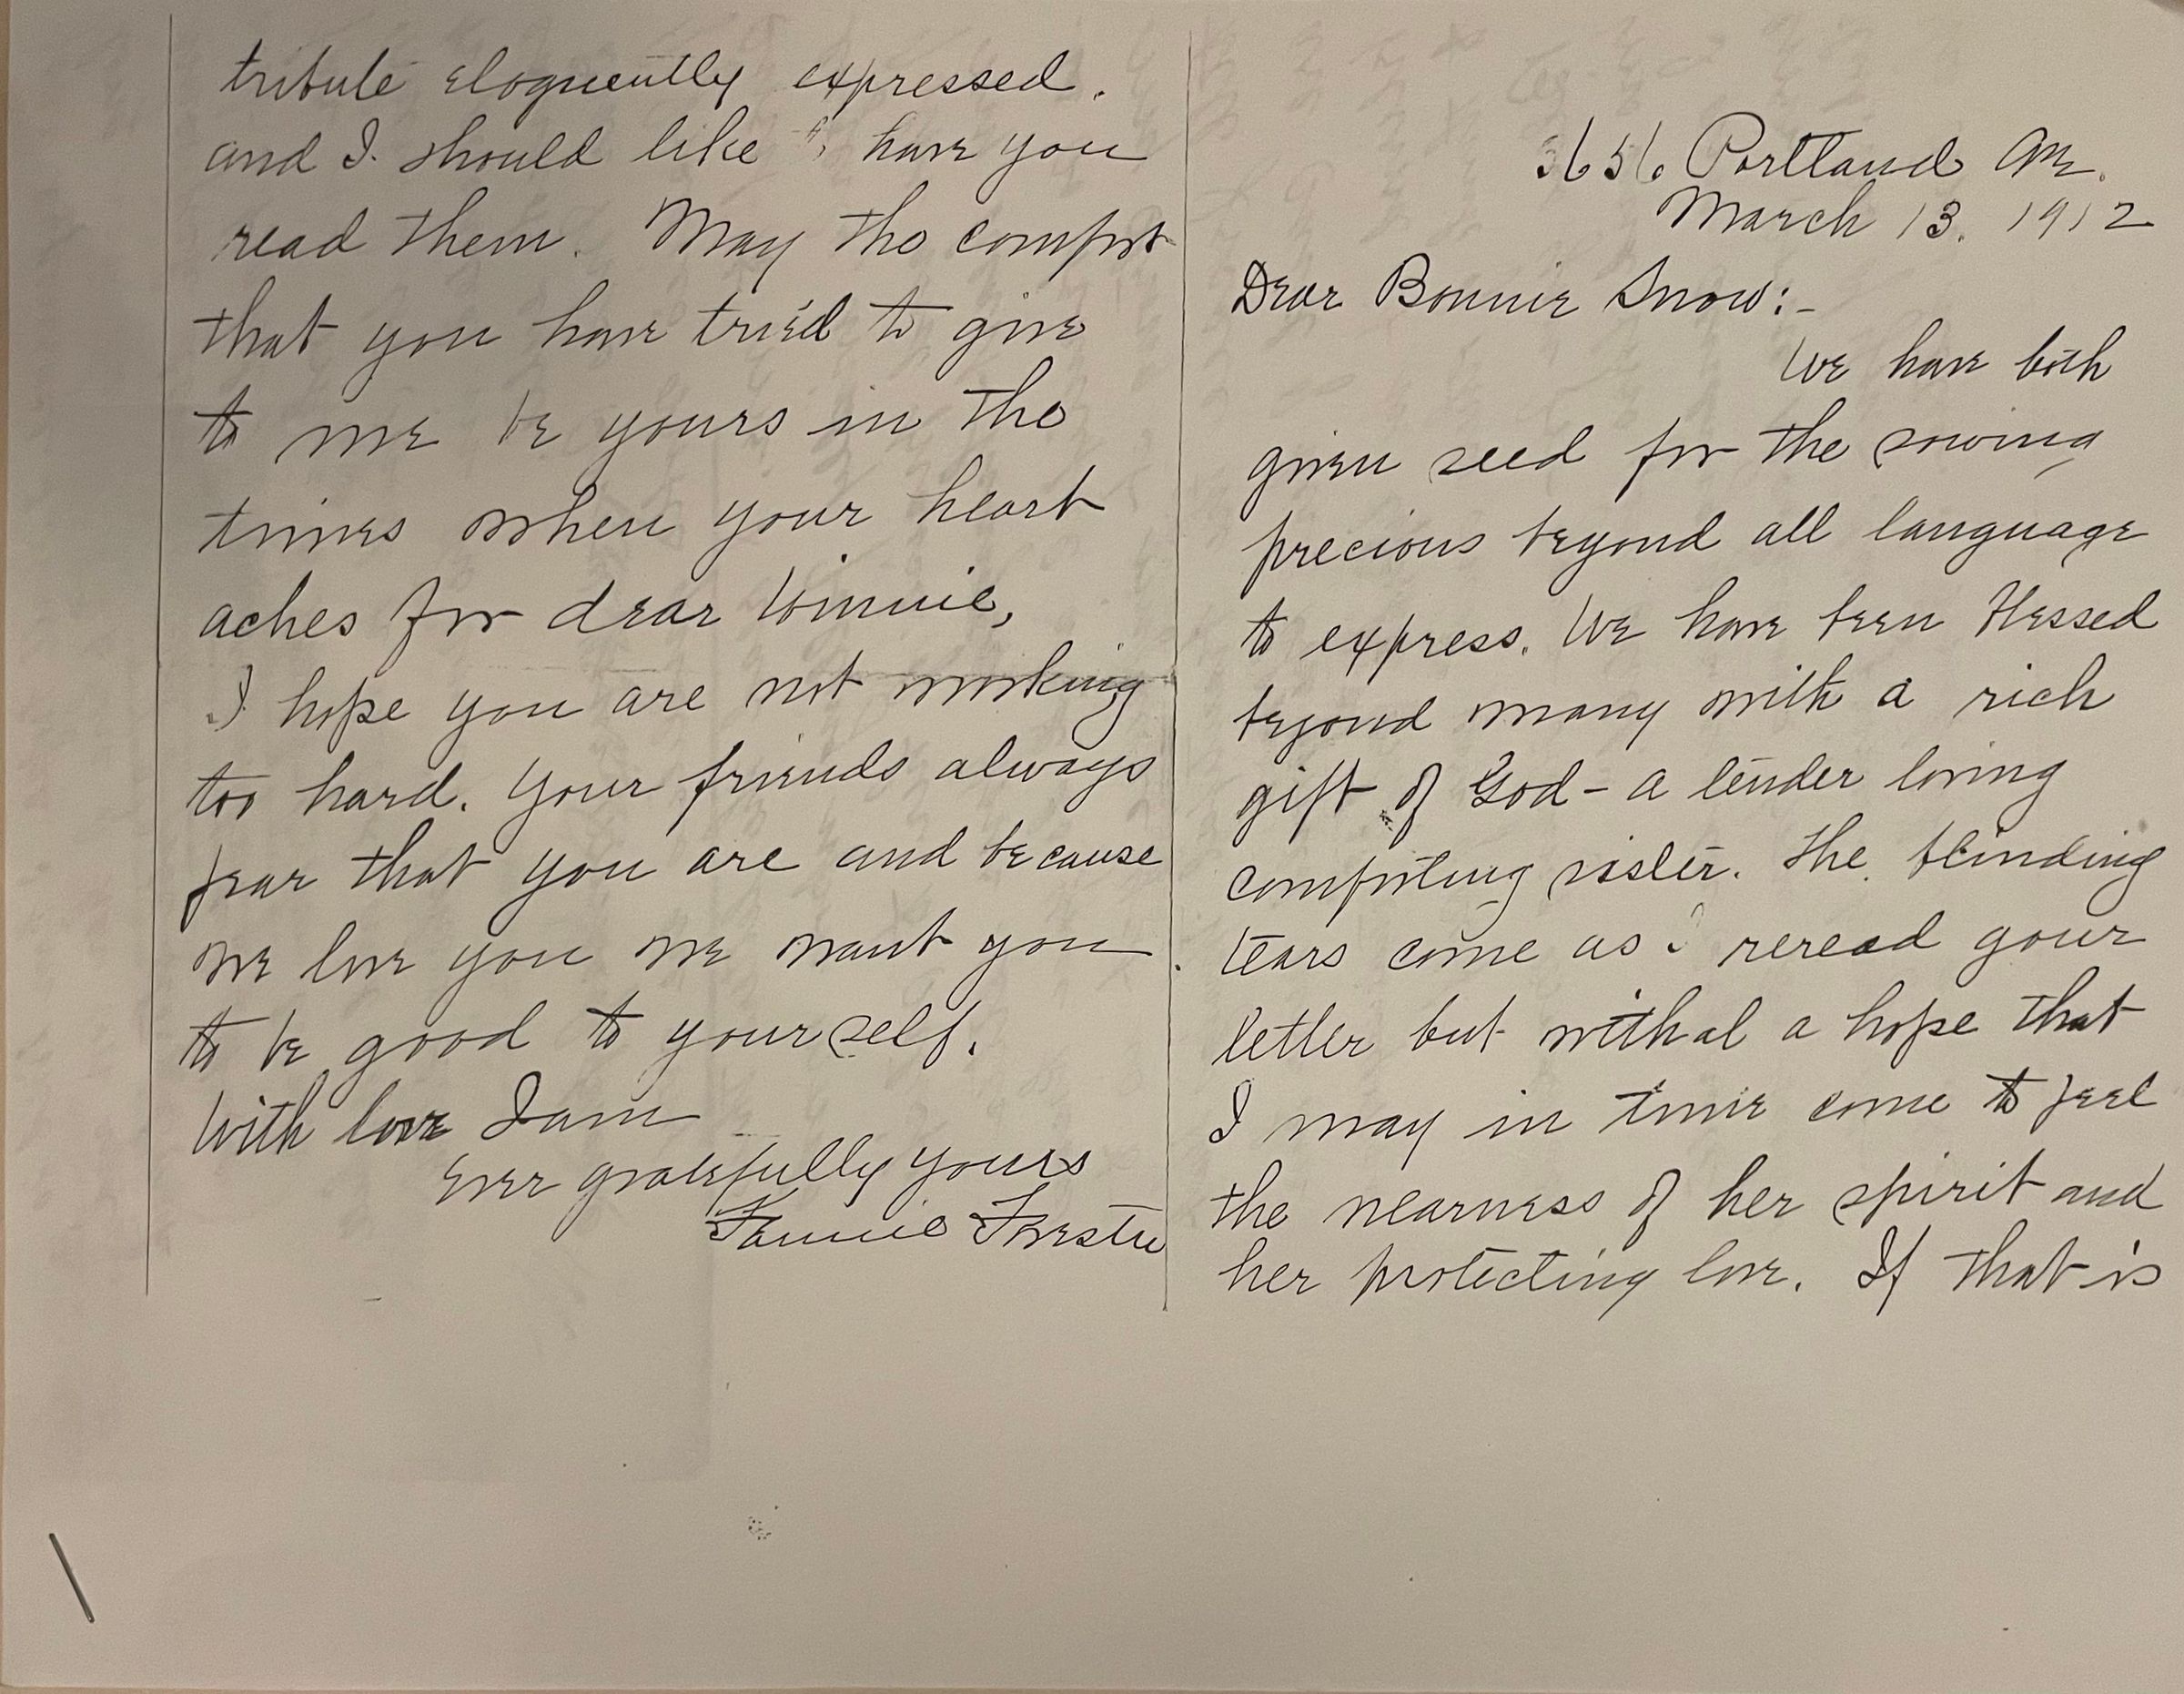 3656 Portland Ave.
March 13. 1912
Dear Bonnie Snow:-
We have both
given seed for the sowing
precious beyond all language
to express. We have been blessed
beyond many with a rich
gift of God - a tender loving
comforting sister. The blinding
tears come as I reread your
letter but withal a hope that
I may in time come to feel
the nearness of her spirit and
her protecting love. If that is
tribute eloquently expressed.
and I should like to have you
read them. May the comfort
that you have tried to give
to me be yours in the
times when your heart
aches for dear Winnie,
I hope you are not working
too hard. Your friends always
fear that you are and because
we love you we want you
to be good to yourself.
With love I am
Ever gratefully yours
Fannie